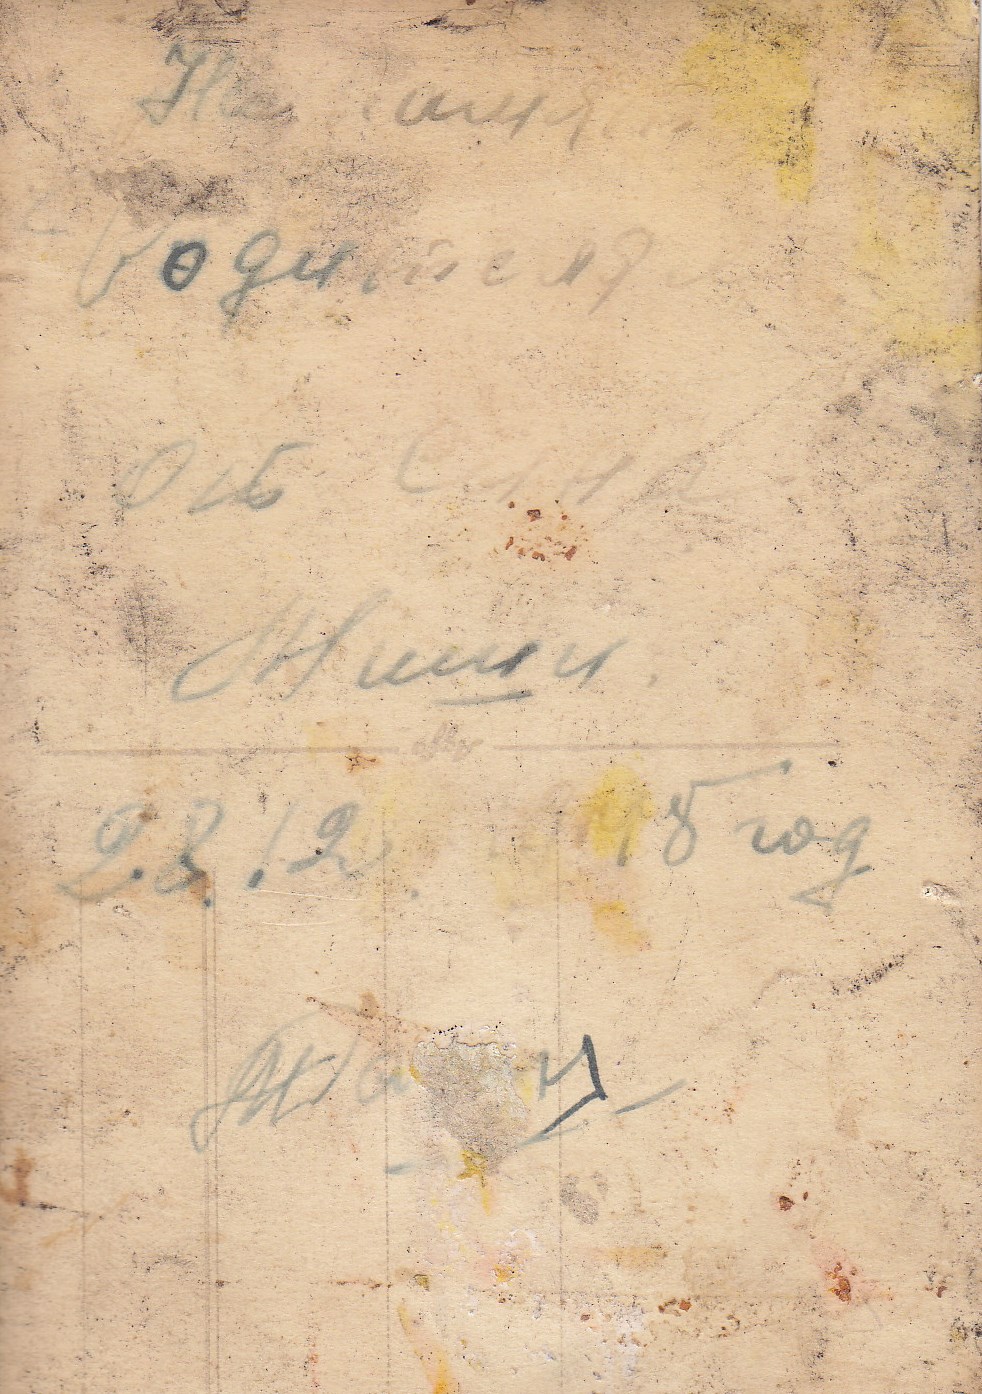 На память
родителям
От сына
Миши.
28.12. 15 год